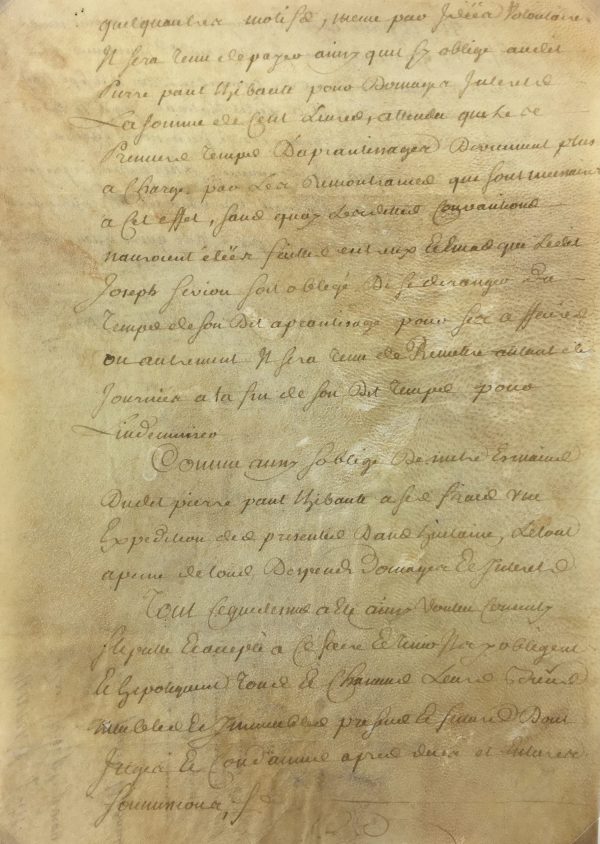 quelquautres motifs, meme par Idéés Volontaire
Il sera tenu de payer ainsy quil sy oblige audit
Pierre paul thibaute pour Domages Interets
La somme de Cent Livres, attendu que Ce
Premiers temps Daprantissages Deviennent plus
a Charge par Les Remontrances qui sont
a Cet effet, sans quoy Lesdittes Conventions
nauroient étéés faittes entreux Et Cas que Ledit
Joseph soit obligé De se deranger Du
temps de son Dit aprantissage pour ses affaires
ou autrement Il sera tenu de Remettre autant de
Journées a la fin de son Dit temps pour
Lindemniser
Comme ainsy soblige De metre Es mains
Dudit pierre paul thibaute a ses fraix une
Expedition des presentes Dans huitaine, Le tout
a peine de tous Despends Domages Et Interets
Tout Ce que dessus a Eté ainsy Voulu Consenty
stipullé Et accepté a Ce faire Et tenir sy obligent
Et hipotiquent tous Et Chacuns Leurs Biens
meubles Et Immeubles presens Et futurs Dont
Jugés Et Condamnés apres et
soumissions